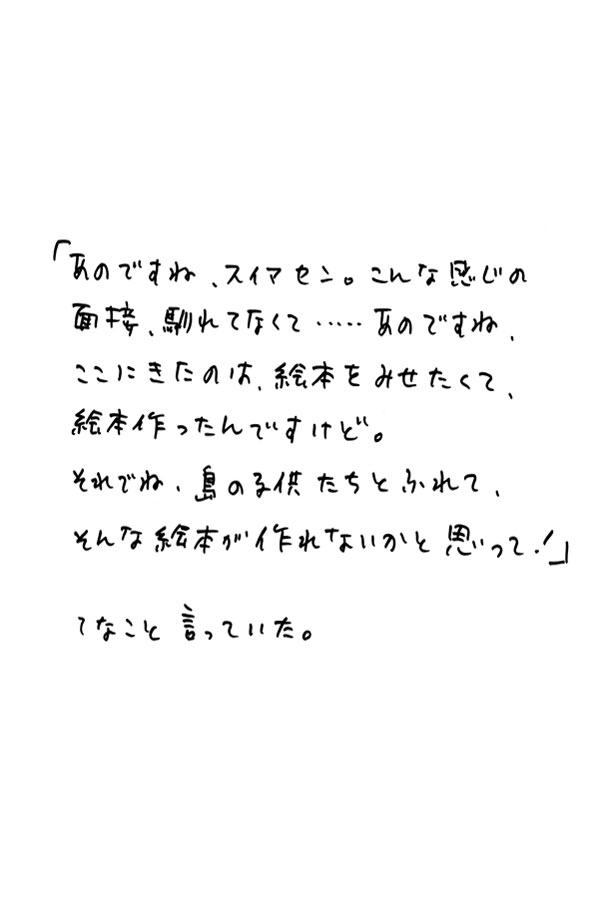 「あのですね、スイマセン。こんな感じの
面接、馴れてなくて……あのですね、
ここにきたのは、絵本をみせたくて、
絵本作ったんですけど。
それでね、島の子供たちとふれて、
そんな絵本が作れないかと思って!」
てなこと言っていた。